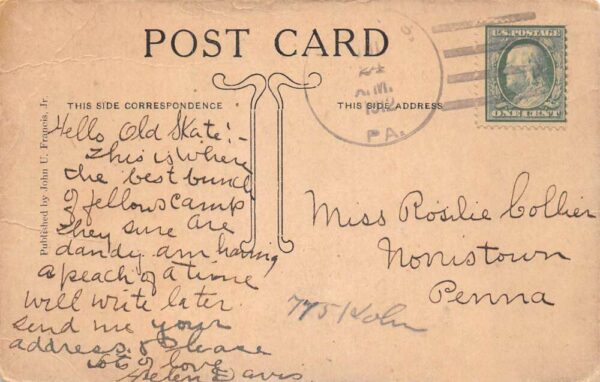 POST CARD
U.S. POSTAGE
ONE CENT
A.M.
1912
PA.
THIS SIDE CORRESPONDENCE
THIS SIDE ADDRESS
Published by John U. Francis, Jr.
Hello Old Skate!-
This is where
the best bunch
of fellows camp
they sure are
dandy am having
a peach of a time
will write later
send me your
address. Please
lots of love
Helen Davis
Miss Rosilie Collier
Norristown
Penna
775 Kohn